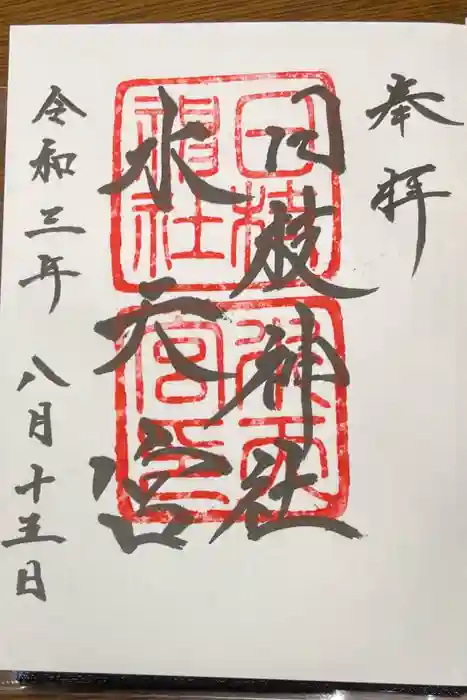 奉拝
日枝神社
水天宮
令和三年 八月十五日
日枝神社
水天宮印